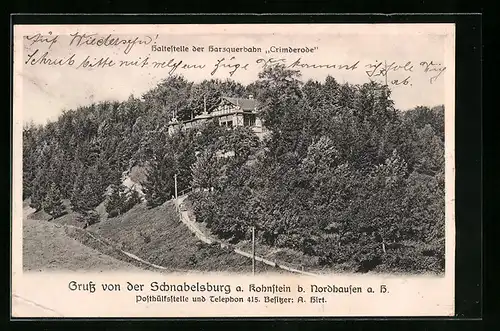 Auf Wiedersehn!
Haltestelle der Harzquerbahn „Crimderode“
Schreib bitte mit welchem Zuge Du kommst, ich hole Dich
ab.
Gruß von der Schnabelsburg a. Kohnstein b. Nordhausen a. H.
Posthülfsstelle und Telephon 415. Besitzer: A. Hirt.